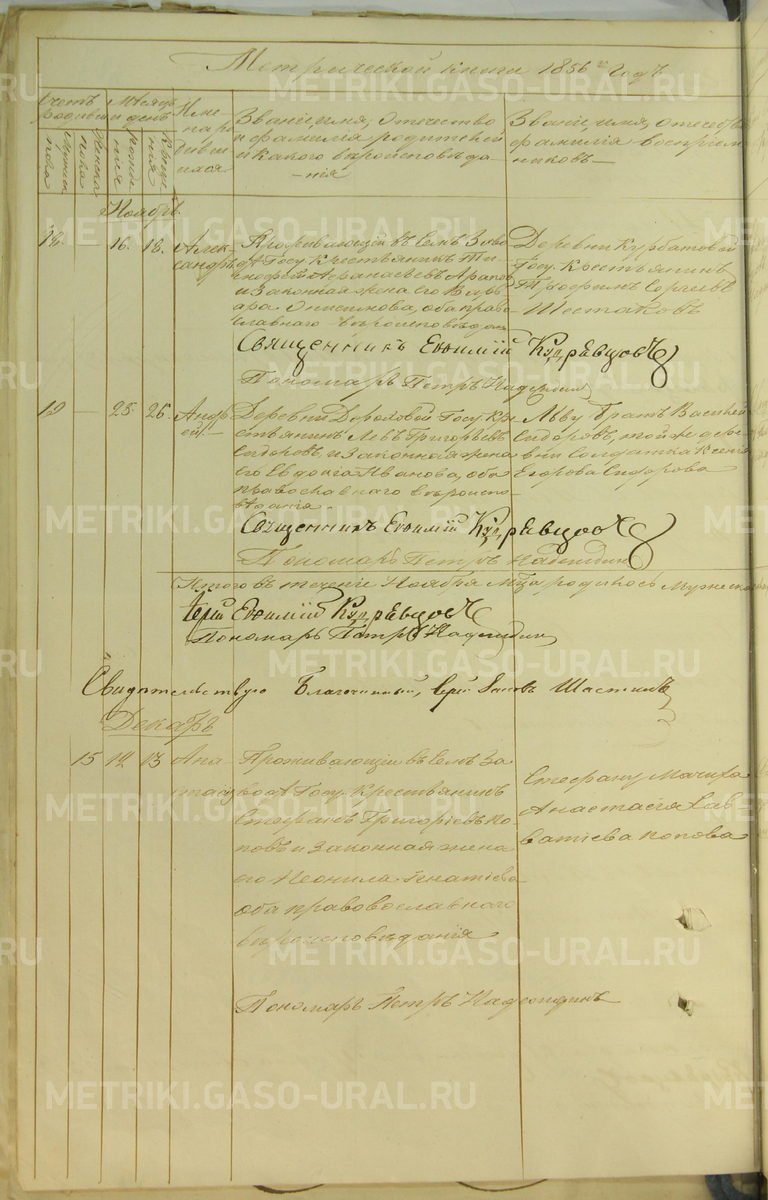 Метрической книги 1856го Годъ
Счетъ Месяцъ Име
родивш и день на ро
Звание, имя, отечество
и фамилия родителей
и какого вероисповеда
ния
Звание, имя, отечество
фамилия восприем
никовъ
Ноябрь
18. — 16. 18. Алек
сандръ
Проживающий въ селѣ Заво
Госу. Крестьянинъ Ти
и Законная жена его Вар
вара Онисимова, оба право
славнаго вѣроисповѣдан
Деревни Курбатовой
Госу. Крестьянинъ
Трофимъ Сергѣевъ
Шестаковъ
Священникъ Евѳимій Кудрявцовъ
Пономарь Петръ Надеждин
19 — 25. 26. Анд
рей
Деревни Дороховой Госу. Кре
стьянинъ Левъ Григорьевъ
Сидоровъ, и Законная жена
его Евдокия Иванова, оба
православнаго вѣроиспо
вѣдания
Льву братъ Василей
Сидоровъ, той же дере
вни Солдатка Ксения
Егорова Сидорова
Священникъ Евѳимій Кудрявцовъ
Пономарь Петръ Надеждин
Итого въ течение Ноября м̃ца родилось Мужеска
Іерей Евѳимій Кудрявцовъ
Пономарь Петръ Надеждин
Свидетельствую Благочинный, Іерей Іаковъ Шастинъ
Декабрь
15 12 13 Ана
стасия
Проживающий въ селѣ За
водѣ Госу. Крестьянинъ
Стефанъ Григориевъ По
повъ и Законная жена
его Неонила Игнатиева
оба правовославнаго
вѣроисповѣдания
Стефану Мачиха
Анастасия Сав
ватиева Попова
Пономарь Петръ Надеждинъ
METRIKI.GASO-URAL.RU